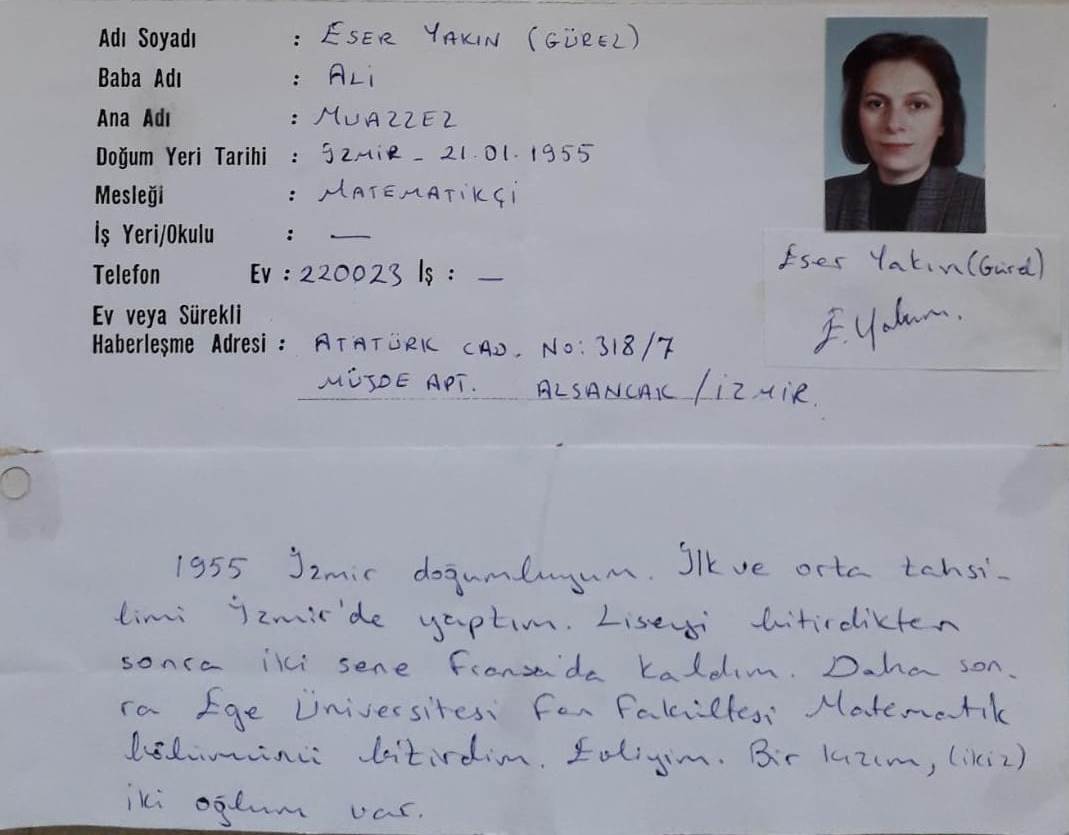 Adı Soyadı : ESER YAKIN (GÜREL)
Baba Adı : ALİ
Ana Adı : MUAZZEZ
Doğum Yeri Tarihi : İZMİR - 21.01.1955
Mesleği : MATEMATİKÇİ
İş Yeri/Okulu : —
Telefon Ev : 220023 İş : —
Ev veya Sürekli
Haberleşme Adresi : ATATÜRK CAD. NO: 318/7
MÜJDE APT. ALSANCAK / İZMİR.
Eser Yakın (Gürel)
E. Yakın.
1955 İzmir doğumluyum. İlk ve orta tahsi-
limi İzmir'de yaptım. Liseyi bitirdikten
sonra iki sene Fransa'da kaldım. Daha son-
ra Ege Üniversitesi Fen Fakültesi Matematik
bölümünü bitirdim. Evliyim. Bir kızım, (ikiz)
iki oğlum var.